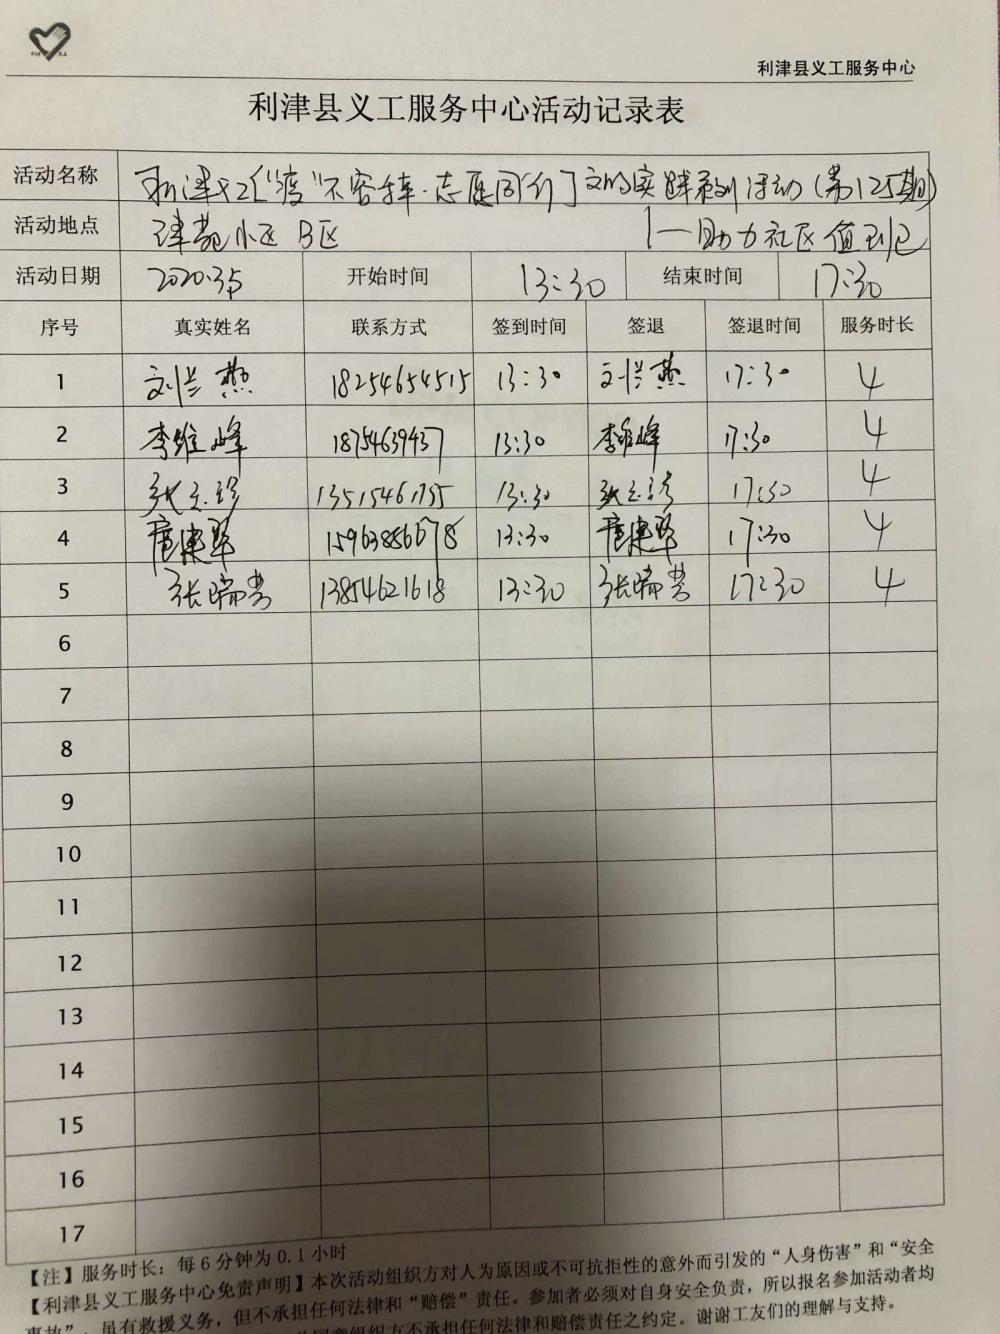 利津县义工服务中心
利津县义工服务中心活动记录表
活动名称 利津义工“疫”不容辞·志愿同行 文明实践系列活动（第125期）
活动地点 津苑小区B区 —助力社区值班
活动日期 2020.3.5 开始时间 13:30 结束时间 17:30
序号 真实姓名 联系方式 签到时间 签退 签退时间 服务时长
1 刘兰燕 18254654515 13:30 刘兰燕 17:30 4
2 李维峰 18754639437 13:30 李维峰 17:30 4
3 13:30 17:30 4
4 15963856678 13:30 17:30 4
5 张瑞芳 13854621618 13:30 张瑞芳 17:30 4
6
7
8
9
10
11
12
13
14
15
16
17
【注】服务时长：每6分钟为0.1小时
【利津县义工服务中心免责声明】本次活动组织方对人为原因或不可抗拒性的意外而引发的“人身伤害”和“安全
事故”，虽有救援义务，但不承担任何法律和“赔偿”责任。参加者必须对自身安全负责，所以报名参加活动者均
组织方不承担任何法律和赔偿责任之约定。谢谢工友们的理解与支持。